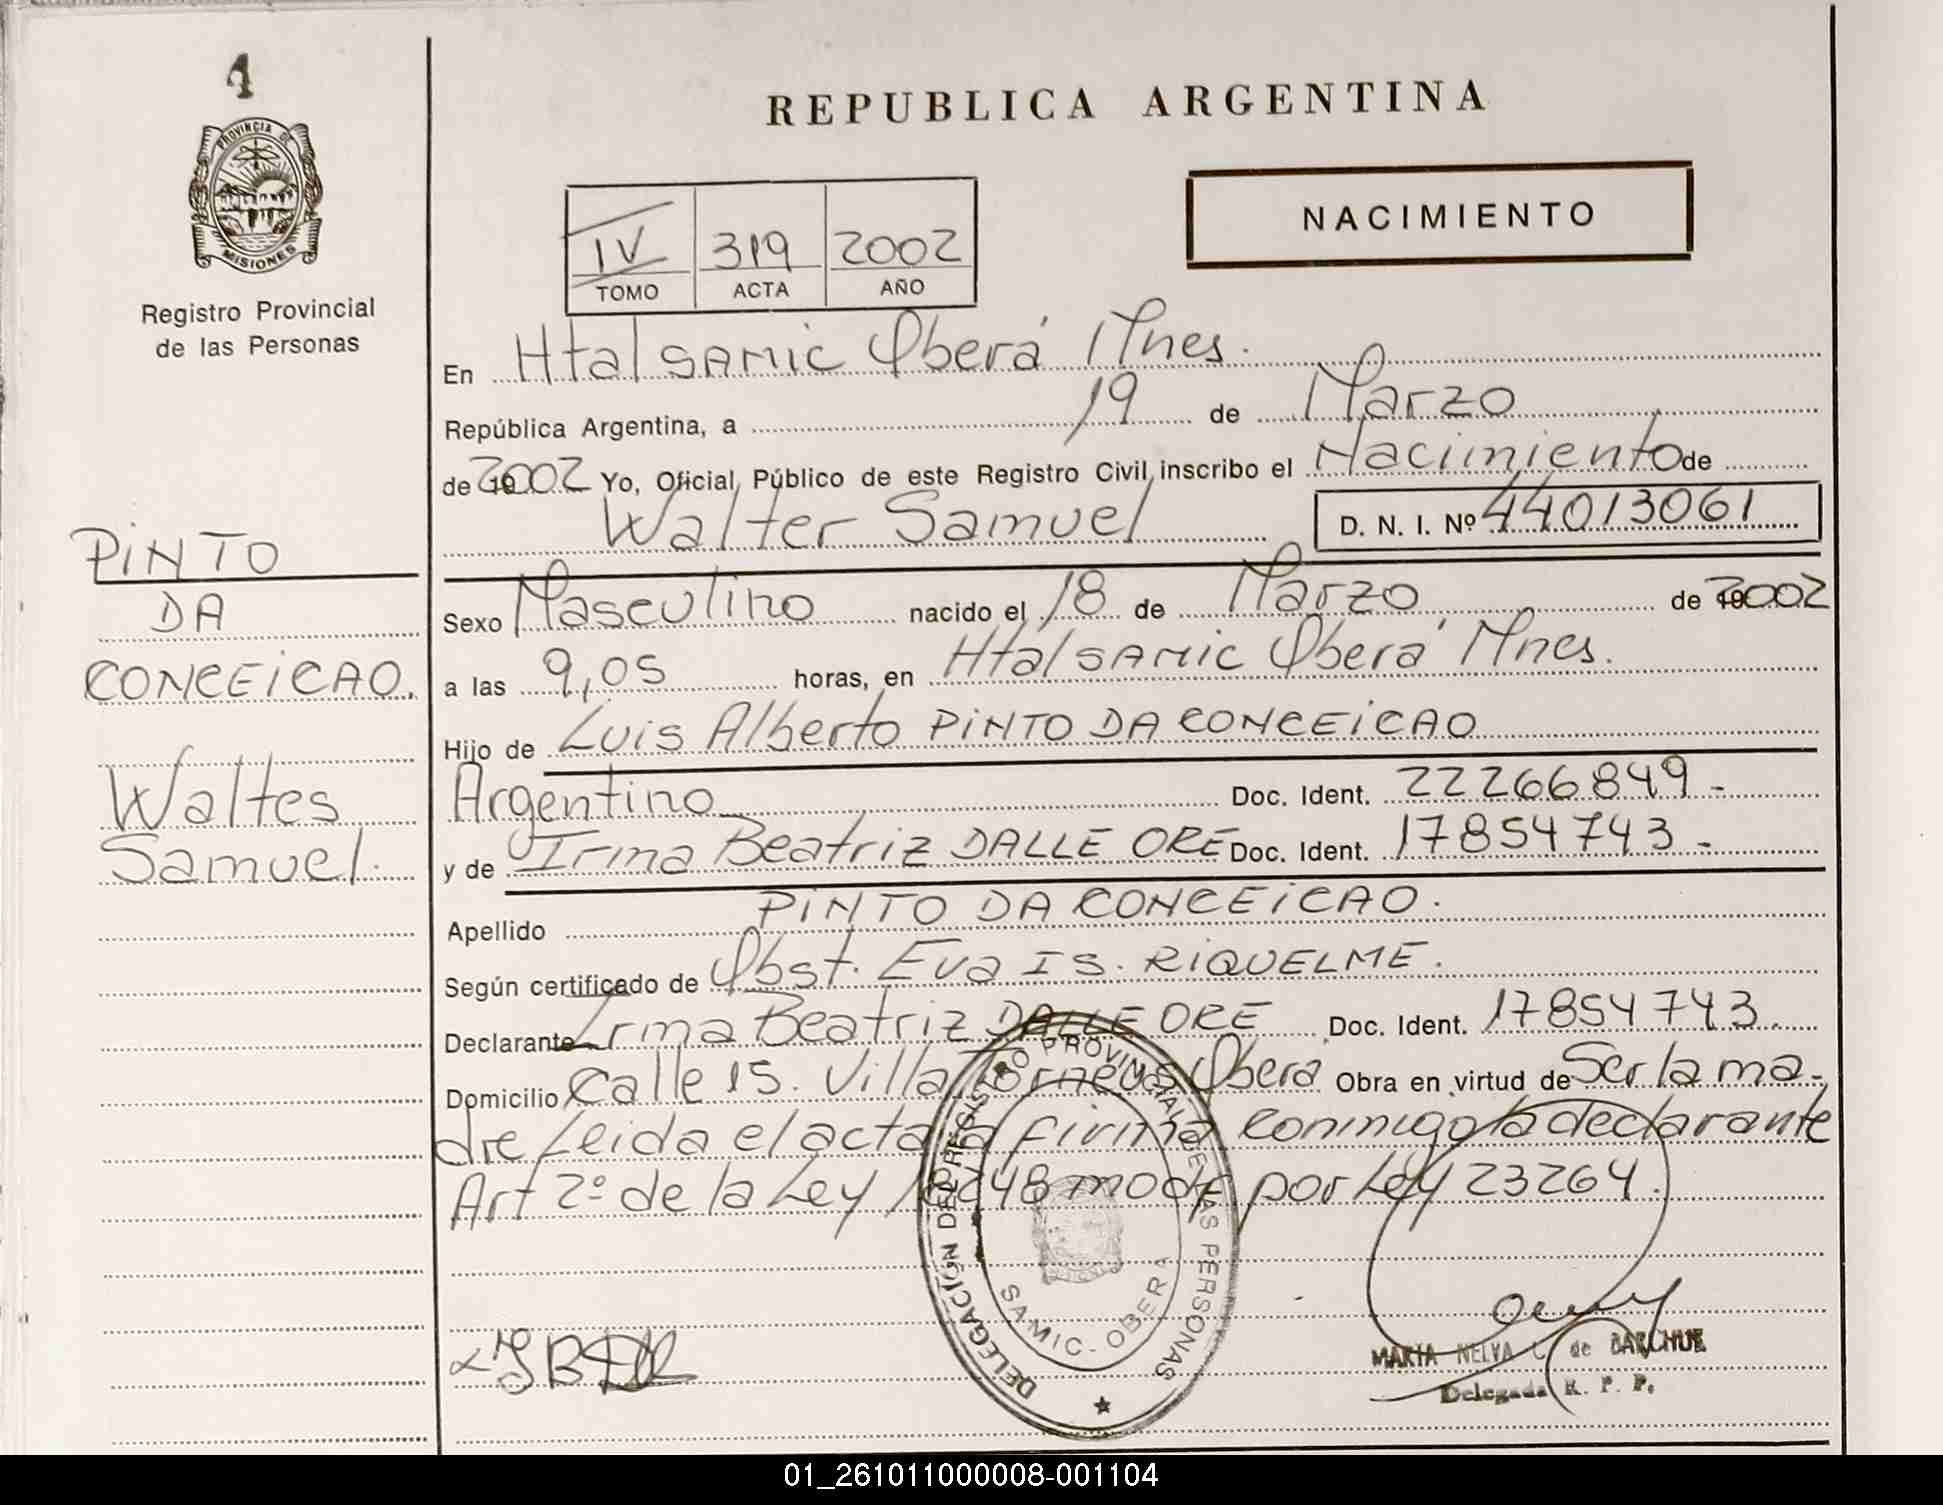 1
PROVINCIA DE
MISIONES
Registro Provincial
de las Personas
REPUBLICA ARGENTINA
NACIMIENTO
IV 319 2002
TOMO ACTA AÑO
En Htal SAMIC Oberá Mnes.
República Argentina, a 19 de Marzo
de 2002 Yo, Oficial Público de este Registro Civil, inscribo el Nacimiento de
Walter Samuel D. N. I. Nº 44013061
PINTO
DA
CONCEICAO.
Walter
Samuel.
Sexo Masculino nacido el 18 de Marzo de 2002
a las 9,05 horas, en Htal SAMIC Oberá Mnes.
Hijo de Luis Alberto PINTO DA CONCEICAO
Argentino Doc. Ident. 22266849 -
y de Irma Beatriz DALLE ORE Doc. Ident. 17854743 -
Apellido PINTO DA CONCEICAO.
Según certificado de Obst. Eva IS. RIQUELME.
Declarante Irma Beatriz DALLE ORE Doc. Ident. 17854743.
Domicilio Calle 15. Villa Oberá Obra en virtud de Ser la ma-
dre Leida el acta la firma conmigo la declarante
Art 2º de la Ley modf por Ley 23264.
DELEGACIÓN DEL REGISTRO PROVINCIAL DE LAS PERSONAS
SAMIC - OBERA
MARIA NELVA C. de
Delegada R. P. P.
01_261011000008-001104